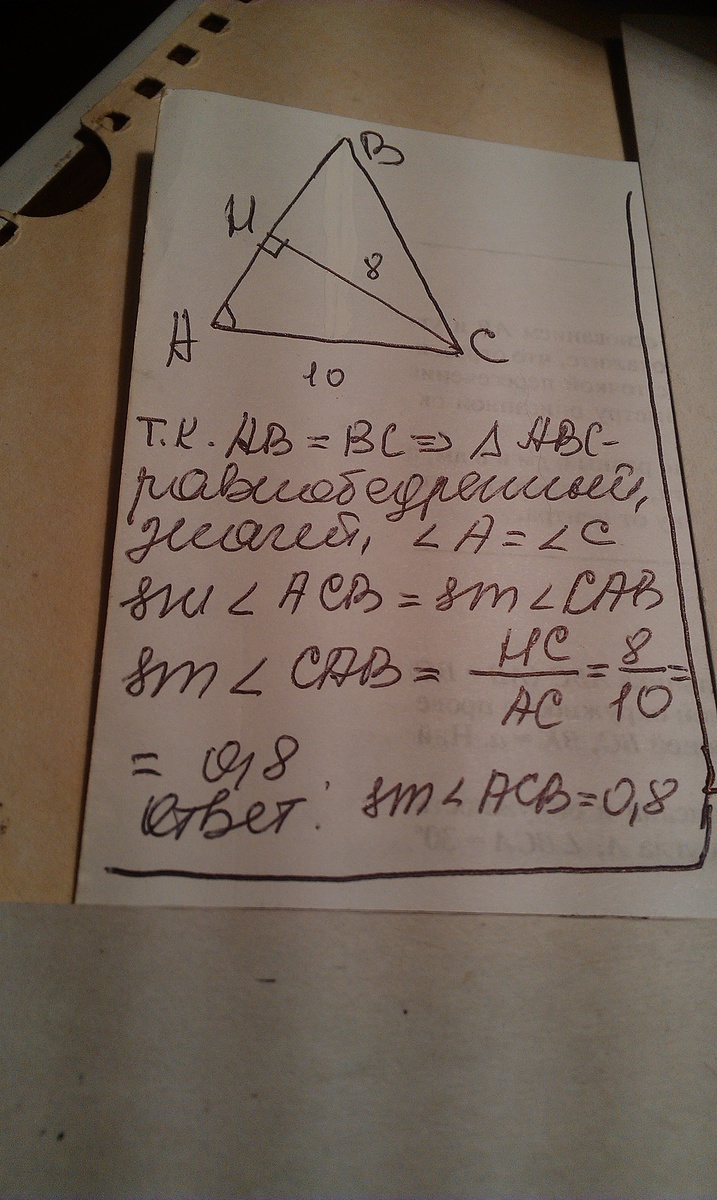 B
H
8
A
C
10
Т.К. AB = BC ⇒ Δ ABC-
равнобедренный,
значит, ∠A = ∠C
sin ∠ ACB = sin ∠CAB
sin ∠ CAB = HC/AC = 8/10 =
= 0,8
Ответ: sin ∠ ACB = 0,8